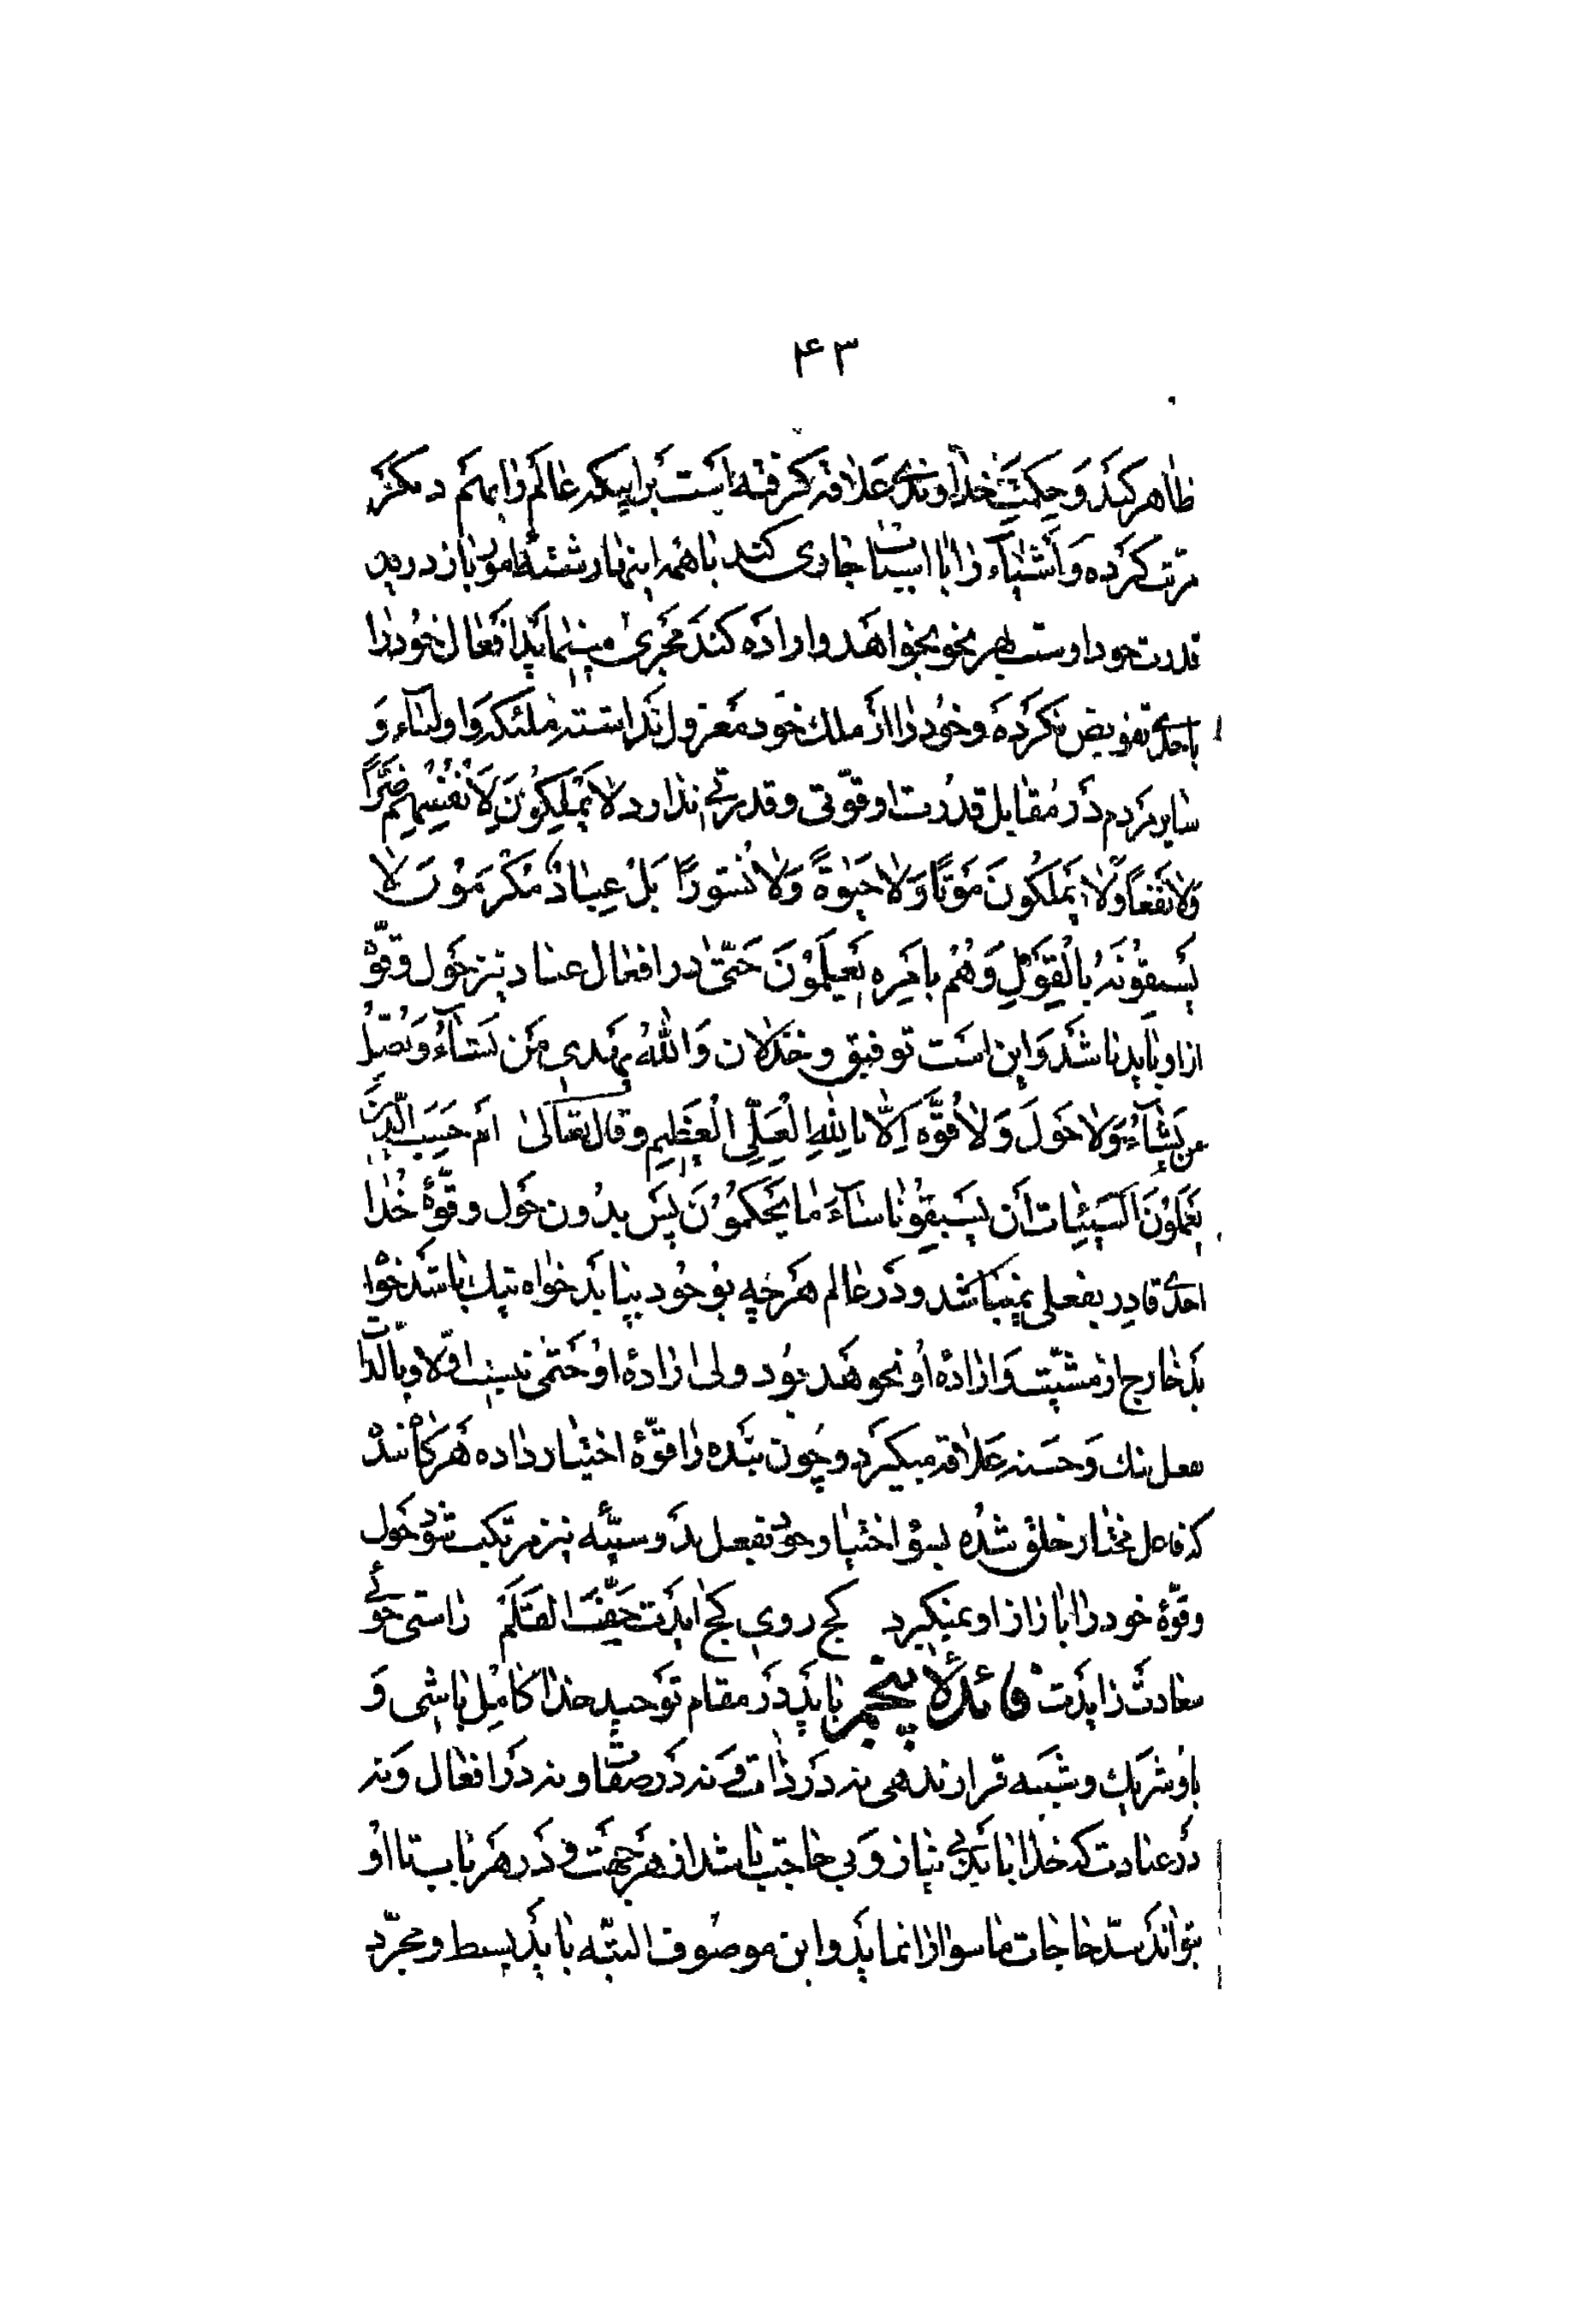 ۴۳
ظاهر کند و حکمت خداوندی علاقه گرفته است براینکه عالم را بهم دیگر
مرتب کرده و اشیآء را با اسباب جاری کند با همه اینها رشته امور باز در ید
قدرت خود اوست بهر نحو بخواهد و اراده کند مجری مینماید افعال خود را
باحدی تفویض نکرده و خود را از ملک خود معزول نداشته ملئکه و اولیآء و
سایر مردم در مقابل قدرت او قوّتی و قدرتی ندارد لَا یَمْلِکُونَ لِاَنْفُسِهِمْ ضَرًّا
وَلَا نَفْعًا وَلَا یَمْلِکُونَ مَوْتًا وَلَا حَیٰوةً وَلَا نُشُورًا بَلْ عِبَادٌ مُکْرَمُونَ لَا
یَسْبِقُونَهُ بِالْقَوْلِ وَهُمْ بِاَمْرِهِ یَعْمَلُونَ حتّی در افعال عباد نیز حول و قوّه
از او باید باشد و این است توفیق و خذلان وَاللهُ یَهْدِی مَنْ یَشَآءُ وَ یُضِلُّ
مَنْ یَشَآءُ وَلَا حَوْلَ وَلَا قُوَّةَ اِلَّا بِاللهِ الْعَلِیِّ الْعَظِیمِ و قال تعالی اَمْ حَسِبَ الَّذِینَ
یَعْمَلُونَ السَّیِّئَاتِ اَنْ یَسْبِقُونَا سَآءَ مَا یَحْکُمُونَ پس بدون حول و قوّهٔ خدا
احدی قادر بفعلی نمیباشد و در عالم هر چه بوجود بیاید خواه نیک باشد خواه
بد خارج از مشیّت و ارادهٔ او نخواهد بود ولی ارادهٔ او حتمی نیست اوّلا و بالذات
بفعل نیک و حسنه علاقه میگیرد و چون بنده را قوّهٔ اختیار داده هرگاه بنده
که فاعل مختار خلق شده بسوء اختیار خود بفعل بد و سیّئه نیز مرتکب شود حول
و قوّهٔ خود را باز از او نمیگیرد کج روی کج آیدت جَفَّ الْقَلَمْ راستی جوئی
سعادت زایدت فائدهٔ پنجم باید در مقام توحید خدا کامل باشی و
باو شریک و شبیه قرار ندهی نه در ذات و نه در صفات و نه در افعال و نه
در عبادت که خدا باید بی نیاز و بی حاجت باشد از هر جهت و در هر باب تا او
بتواند سدّ حاجات ماسوا را نماید و این موصوف البتّه باید بسیط و مجرّد